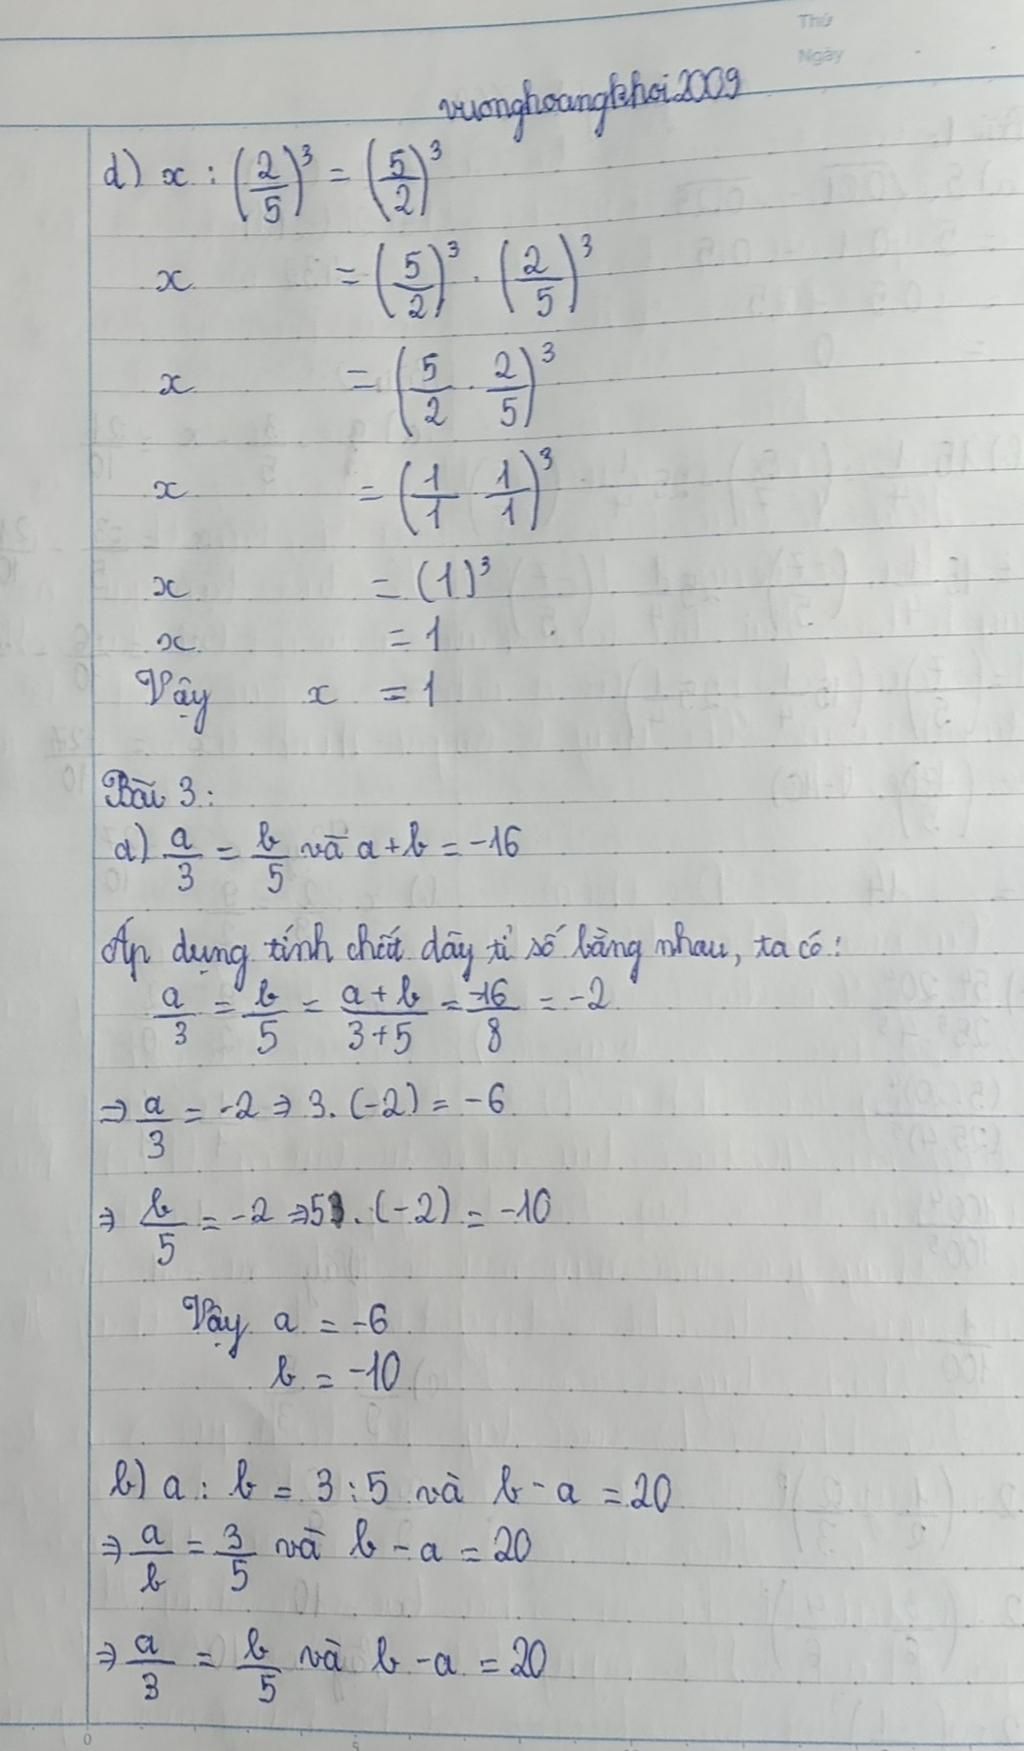 Thứ
Ngày
vuonghoangkhoi2009
d) x : (2/5)³ = (5/2)³
x = (5/2)³ . (2/5)³
x = (5/2 . 2/5)³
x = (1/1 . 1/1)³
x = (1)³
x = 1
Vậy x = 1
Bài 3:
a) a/3 = b/5 và a+b = -16
Áp dụng tính chất dãy tỉ số bằng nhau, ta có:
a/3 = b/5 = a+b/3+5 = -16/8 = -2
⇒ a/3 = -2 ⇒ 3. (-2) = -6
⇒ b/5 = -2 ⇒ 5. (-2) = -10
Vậy a = -6
b = -10
b) a : b = 3 : 5 và b - a = 20
⇒ a/b = 3/5 và b - a = 20
⇒ a/3 = b/5 và b - a = 20
0
5